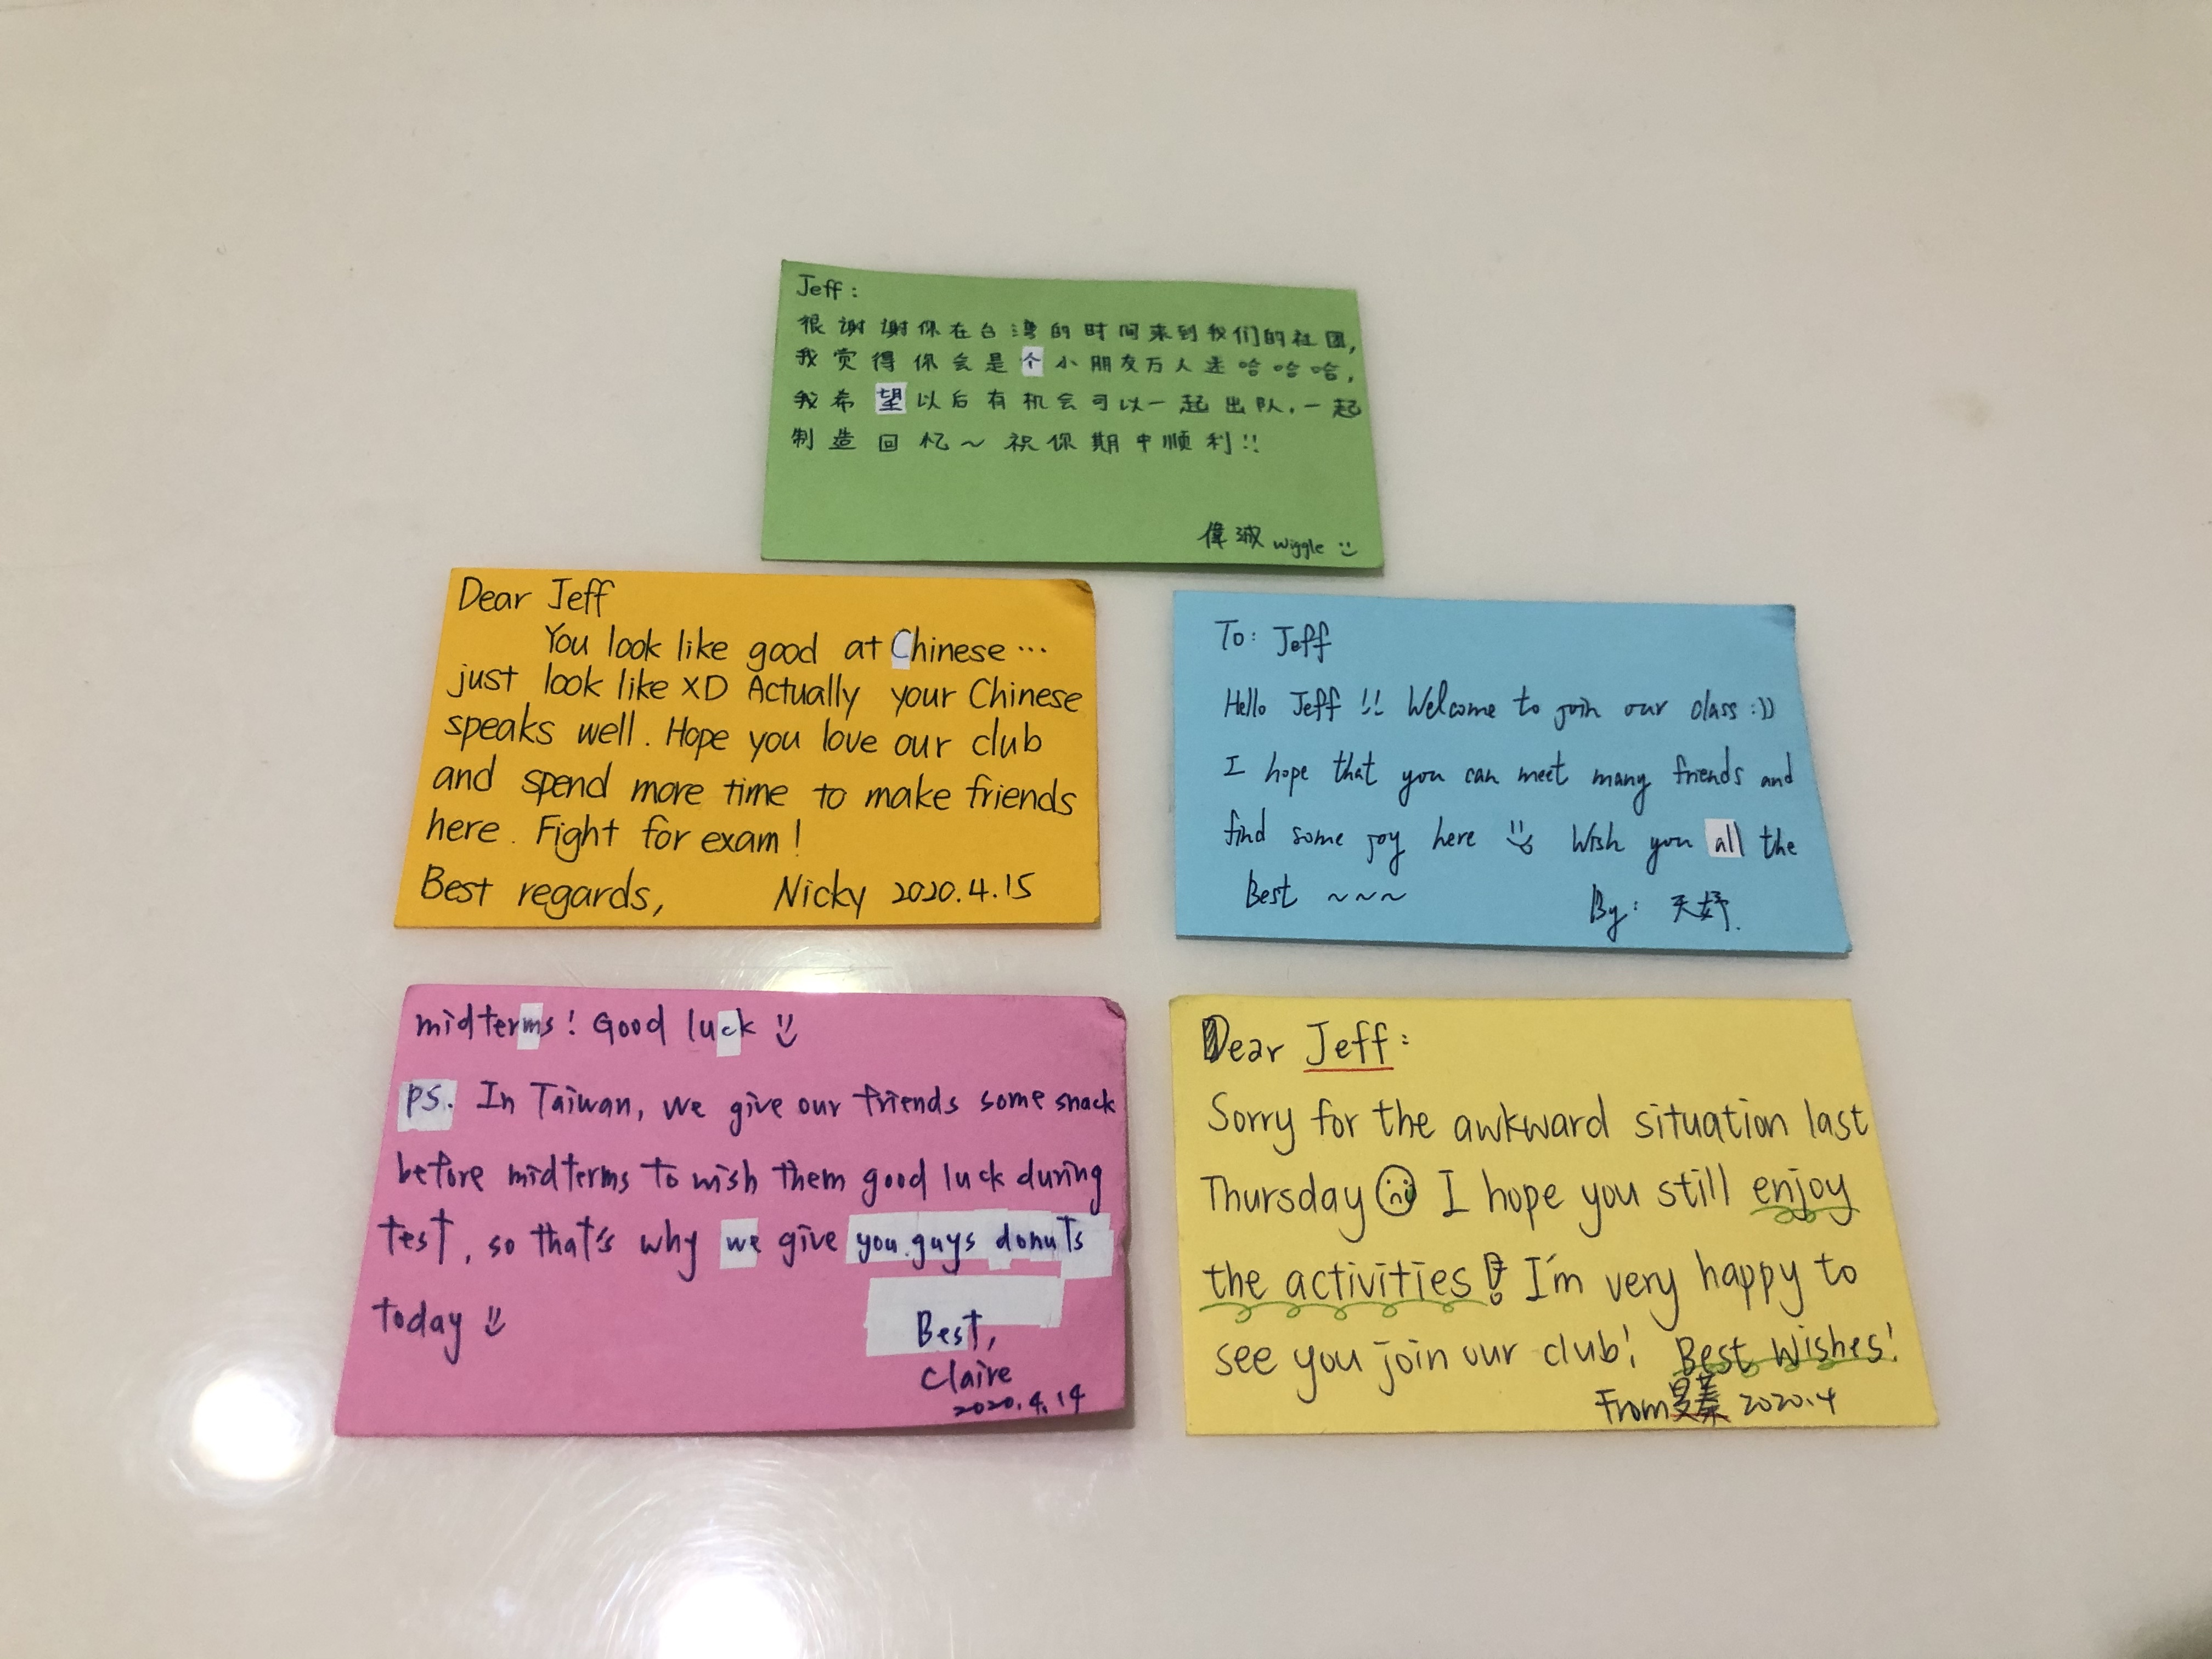 Jeff:
很谢谢你在台湾的时间来到我们的社团,
我觉得你会是个小朋友万人迷哈哈哈,
我希望以后有机会可以一起出队,一起
制造回忆~祝你期中顺利!!
偉淑 wiggle :)
Dear Jeff
You look like good at Chinese...
just look like XD Actually your Chinese
speaks well. Hope you love our club
and spend more time to make friends
here. Fight for exam!
Best regards, Nicky 2020.4.15
To: Jeff
Hello Jeff!! Welcome to join our class:))
I hope that you can meet many friends and
find some joy here :) Wish you all the
Best ~~~
By: 天妤.
midterms! Good luck :)
PS. In Taiwan, we give our friends some snack
before midterms to wish them good luck during
test, so that's why we give you guys donuts
today :)
Best,
Claire
2020.4.14
Dear Jeff:
Sorry for the awkward situation last
Thursday I hope you still enjoy
the activities! I'm very happy to
see you join our club! Best Wishes!
From 2020.4